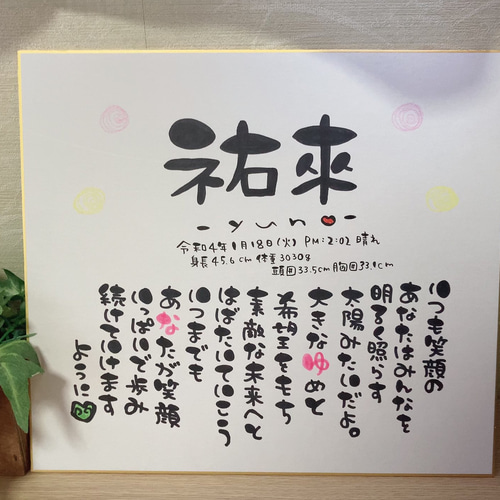 祐来
-yuno-
令和4年1月18日(火) PM:2:02 晴れ
身長45.6cm 体重3030g
頭囲33.5cm 胸囲33.1cm
いつも笑顔の
あなたはみんなを
明るく照らす
太陽みたいだよ。
大きなゆめと
希望をもち
素敵な未来へと
はばたいていこう
いつまでも
あなたが笑顔
いっぱいで歩み
続けていけます
ように